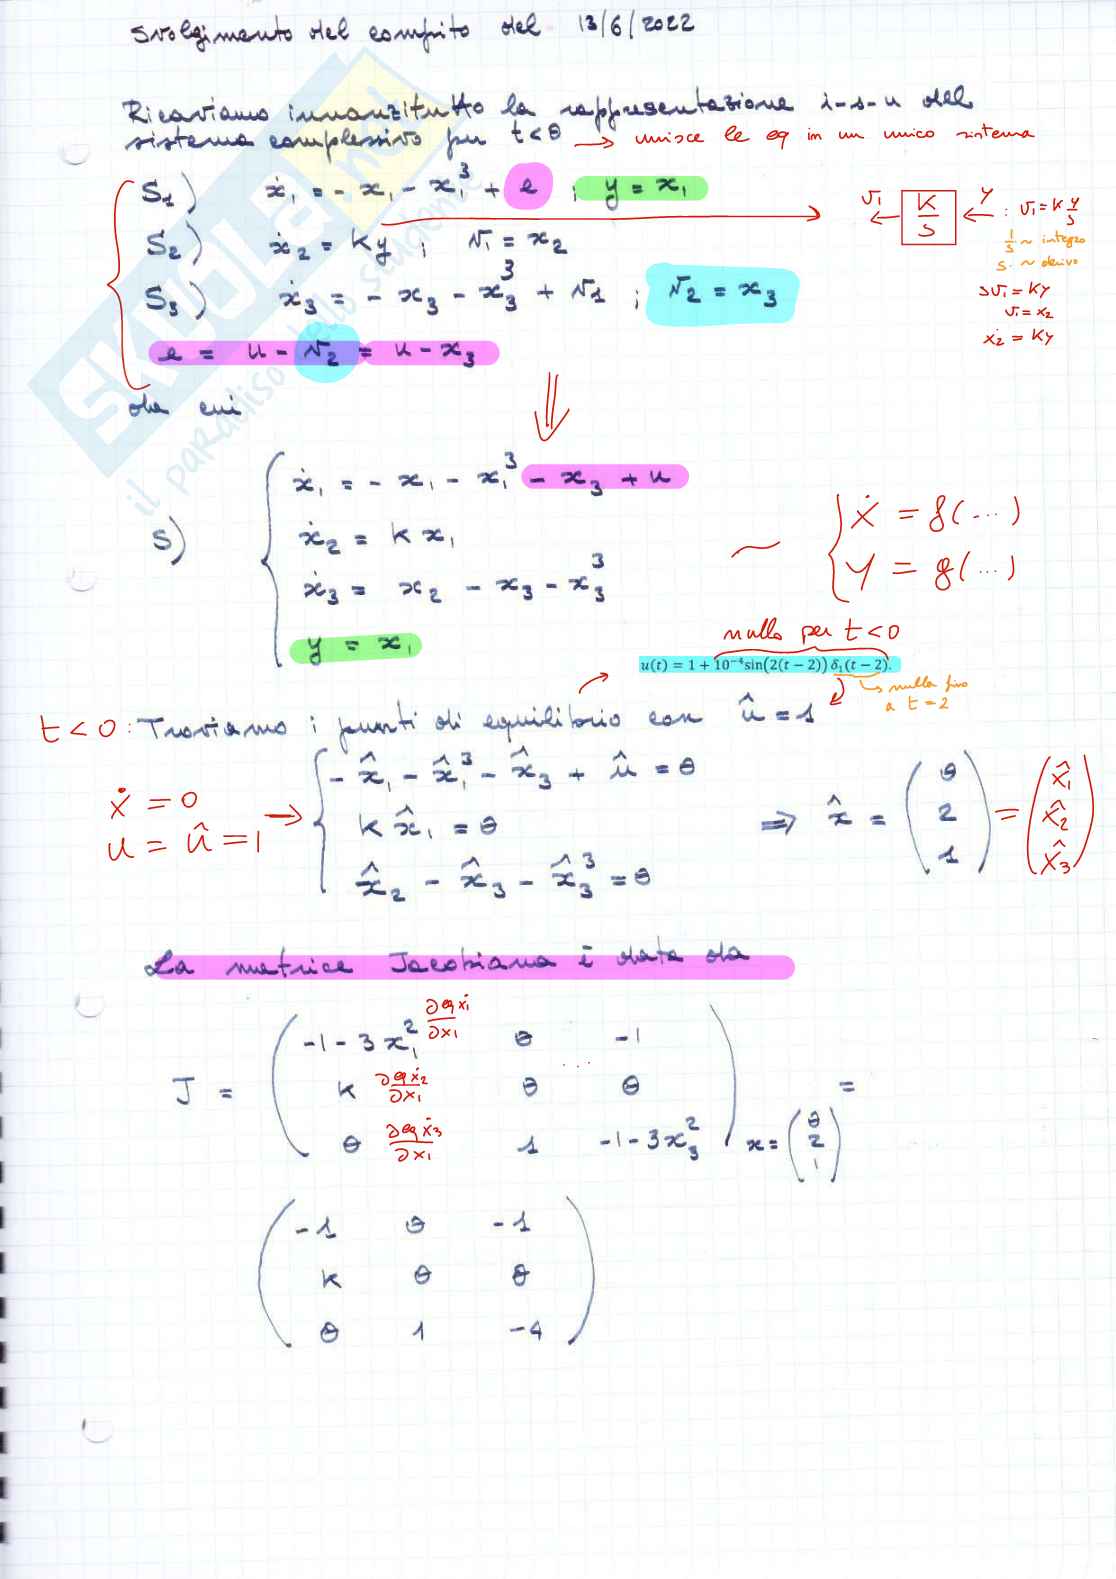 Svolgimento del compito del 13/6/2022
Ricaviamo innanzitutto la rappresentazione i-s-u del
sistema complessivo per t<0 → unisce le eq in un unico sistema
S1) ẋ₁ = - x₁ - x₁³ + e ; y = x₁
S2) ẋ₂ = Ky ; v₁ = x₂
S3) ẋ₃ = - x₃ - x₃³ + v1 ; v₂ = x₃
e = u - v₂ = u - x₃
v₁ ← K/S ← y : v₁ = K y/s
1/s ~ integro
s. ~ derivo
sv₁ = Ky
v₁ = x₂
ẋ₂ = Ky
da cui
⇓
S) ẋ₁ = - x₁ - x₁³ - x₃ + u
ẋ₂ = K x₁
ẋ₃ = x₂ - x₃ - x₃³
y = x₁
~ { Ẋ = f(...)
Y = g(...)
nullo per t<0
u(t) = 1 + 10⁻⁴sin(2(t − 2)) δ₁(t − 2).
↳ nulla fino
a t=2
t<0: Troviamo i punti di equilibrio con û = 1
ẋ = 0
u = û = 1 →
- x̂₁ - x̂₁³ - x̂₃ + û = 0
K x̂₁ = 0
x̂₂ - x̂₃ - x̂₃³ = 0
⇒ x̂ = (0 2 1) = (x̂₁ x̂₂ x̂₃)
La matrice Jacobiana è data da
J = ( -1-3x₁² ∂eq ẋ₁/∂x₁ 0 -1
K ∂eq ẋ₂/∂x₁ 0 ... 0
0 ∂eq ẋ₃/∂x₁ 1 -1-3x₃² ) x = (0 2 1) =
( -1 0 -1
K 0 0
0 1 -4 )
SKUOLA.NU
il paradiso dello studente